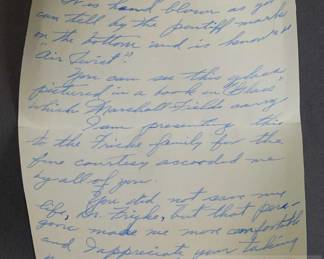 It is hand blown as you
can tell by the pontiff mark
on the bottom and is known as
"Air Twist"
You can see this glass
pictured in a book on "Glass"
which Marshall Fields carry
I am presenting this
to the Fricke family for the
fine courtesy accooded me
by all of you.
You did not save my
life, Dr. Fricke, but that
made me more comfortable
and I appreciate your taking